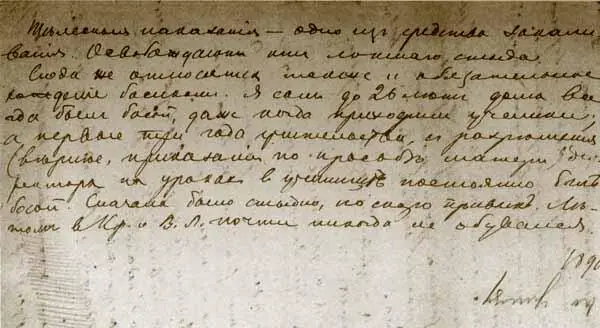 Тѣлесныя наказанія — одно из средствъ закали
ванія. Освобождаютъ они ложнаго стыда.
Сюда же относятся также и обязательное
хожденіе босикомъ. Я самъ до 26 дома все
гда былъ босой, даже когда приходили ученики,
а первые три года учительства, съ разрѣшенія
(вѣрнѣе, приказанія по просьбѣ матери) ди
ректора на урокахъ в училищѣ постоянно былъ
босой. Сначала было стыдно, но скоро привыкъ. Лѣ-
томъ в Кр. и В. Л. почти никогда не обувался.
189